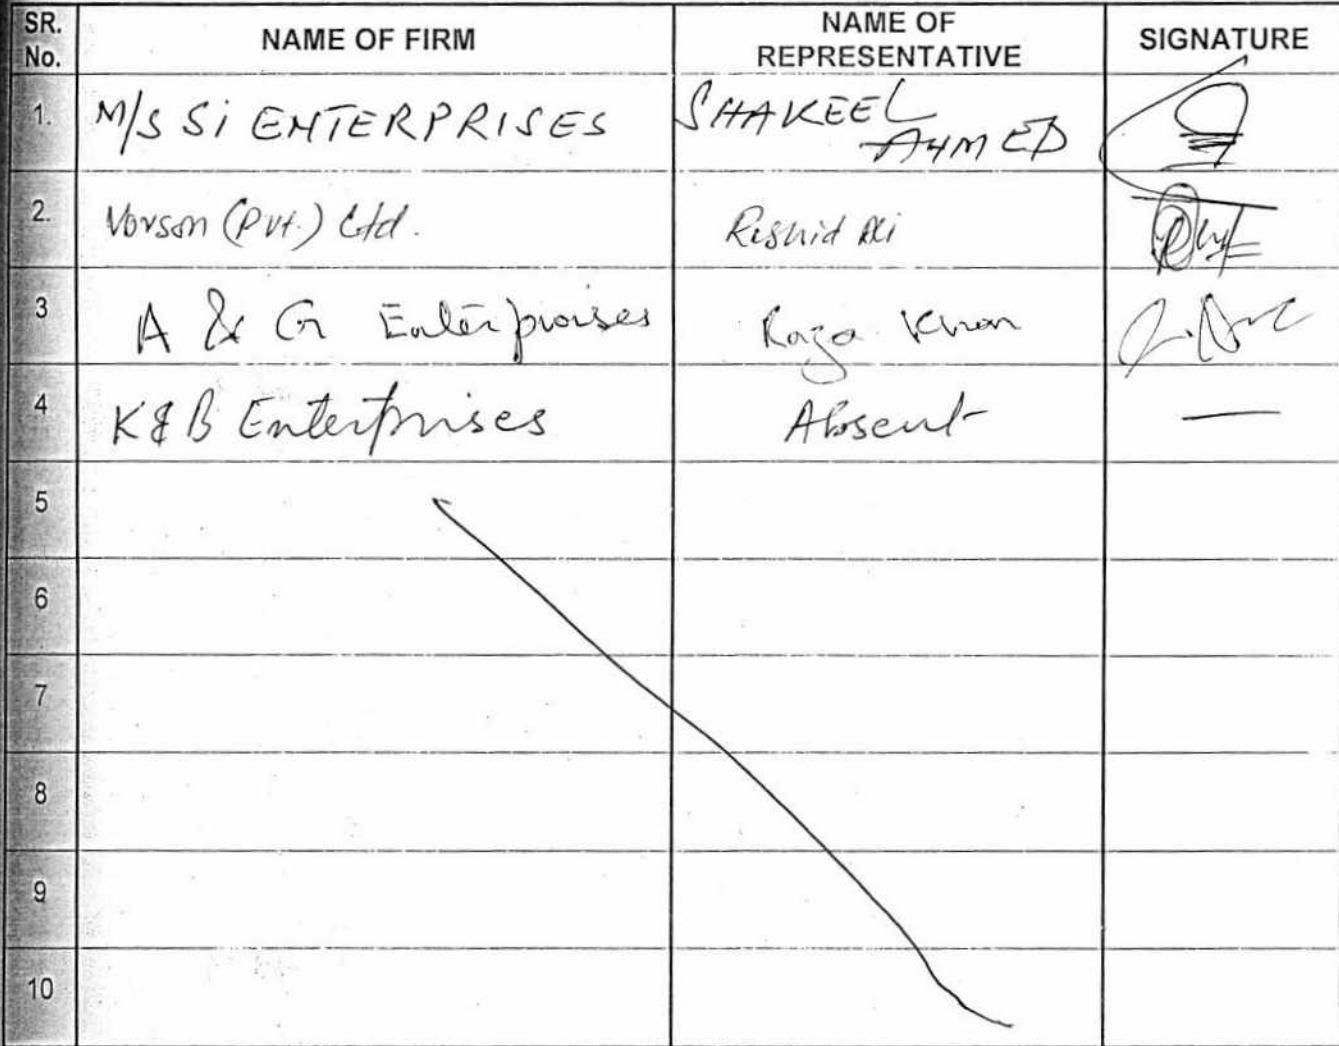 SR. No. NAME OF FIRM NAME OF REPRESENTATIVE SIGNATURE
1. M/S Si ENTERPRISES SHAKEEL AHMED
2. Vorson (Pvt.) Ltd. Rashid Ali
3 A & G Enterprises Raza Khan
4 K&B Enterprises Absent —
5
6
7
8
9
10